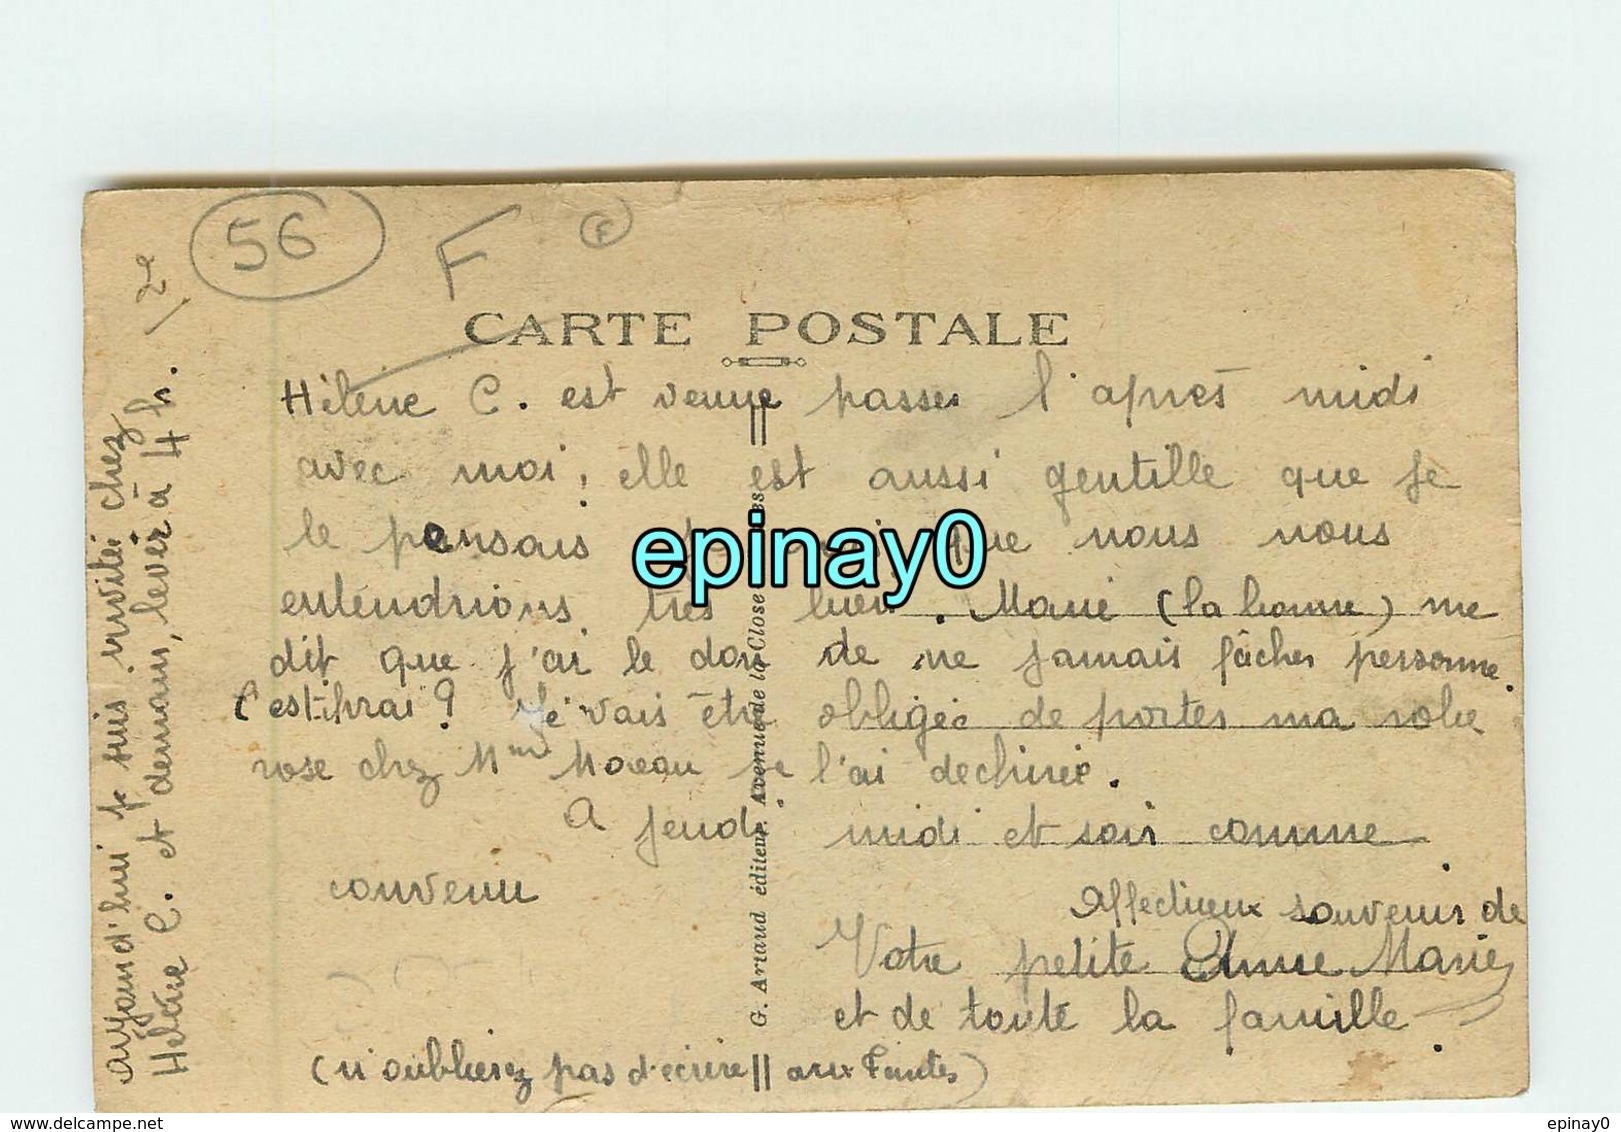 56
F
F
2e
CARTE POSTALE
Hélène C. est venue passer l'après midi
avec moi, elle est aussi gentille que je
le pensais que nous nous
entendrions très bien. Marie (la bonne) me
dit que j'ai le don de ne jamais fâcher personne.
C'est-il vrai? Je vais être obligée de porter ma robe
rose chez Mme Moreau je l'ai déchirée.
A jeudi midi et soir comme
convenu
Affectueux souvenir de
Votre petite Anne Marie
et de toute la famille.
(n'oublierez pas d'écrire aux Tantes)
Aujourd'hui je suis invitée chez
Hélène C. et demain, lever à 4 h.
G. Artaud éditeur. Avenue de la Close
epinay0
epinay0